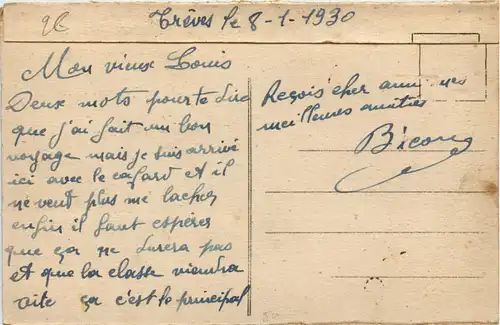 26
Trèves le 8-1-1930
Mon vieux Louis
Deux mots pour te dire
que j'ai fait un bon
voyage mais je suis arrivé
ici avec le cafard et il
ne veut plus me lacher
enfin il faut espérer
que ça ne durera pas
et que la classe viendra
vite ça c'est le principal
Reçois cher ami mes
meilleures amitiés